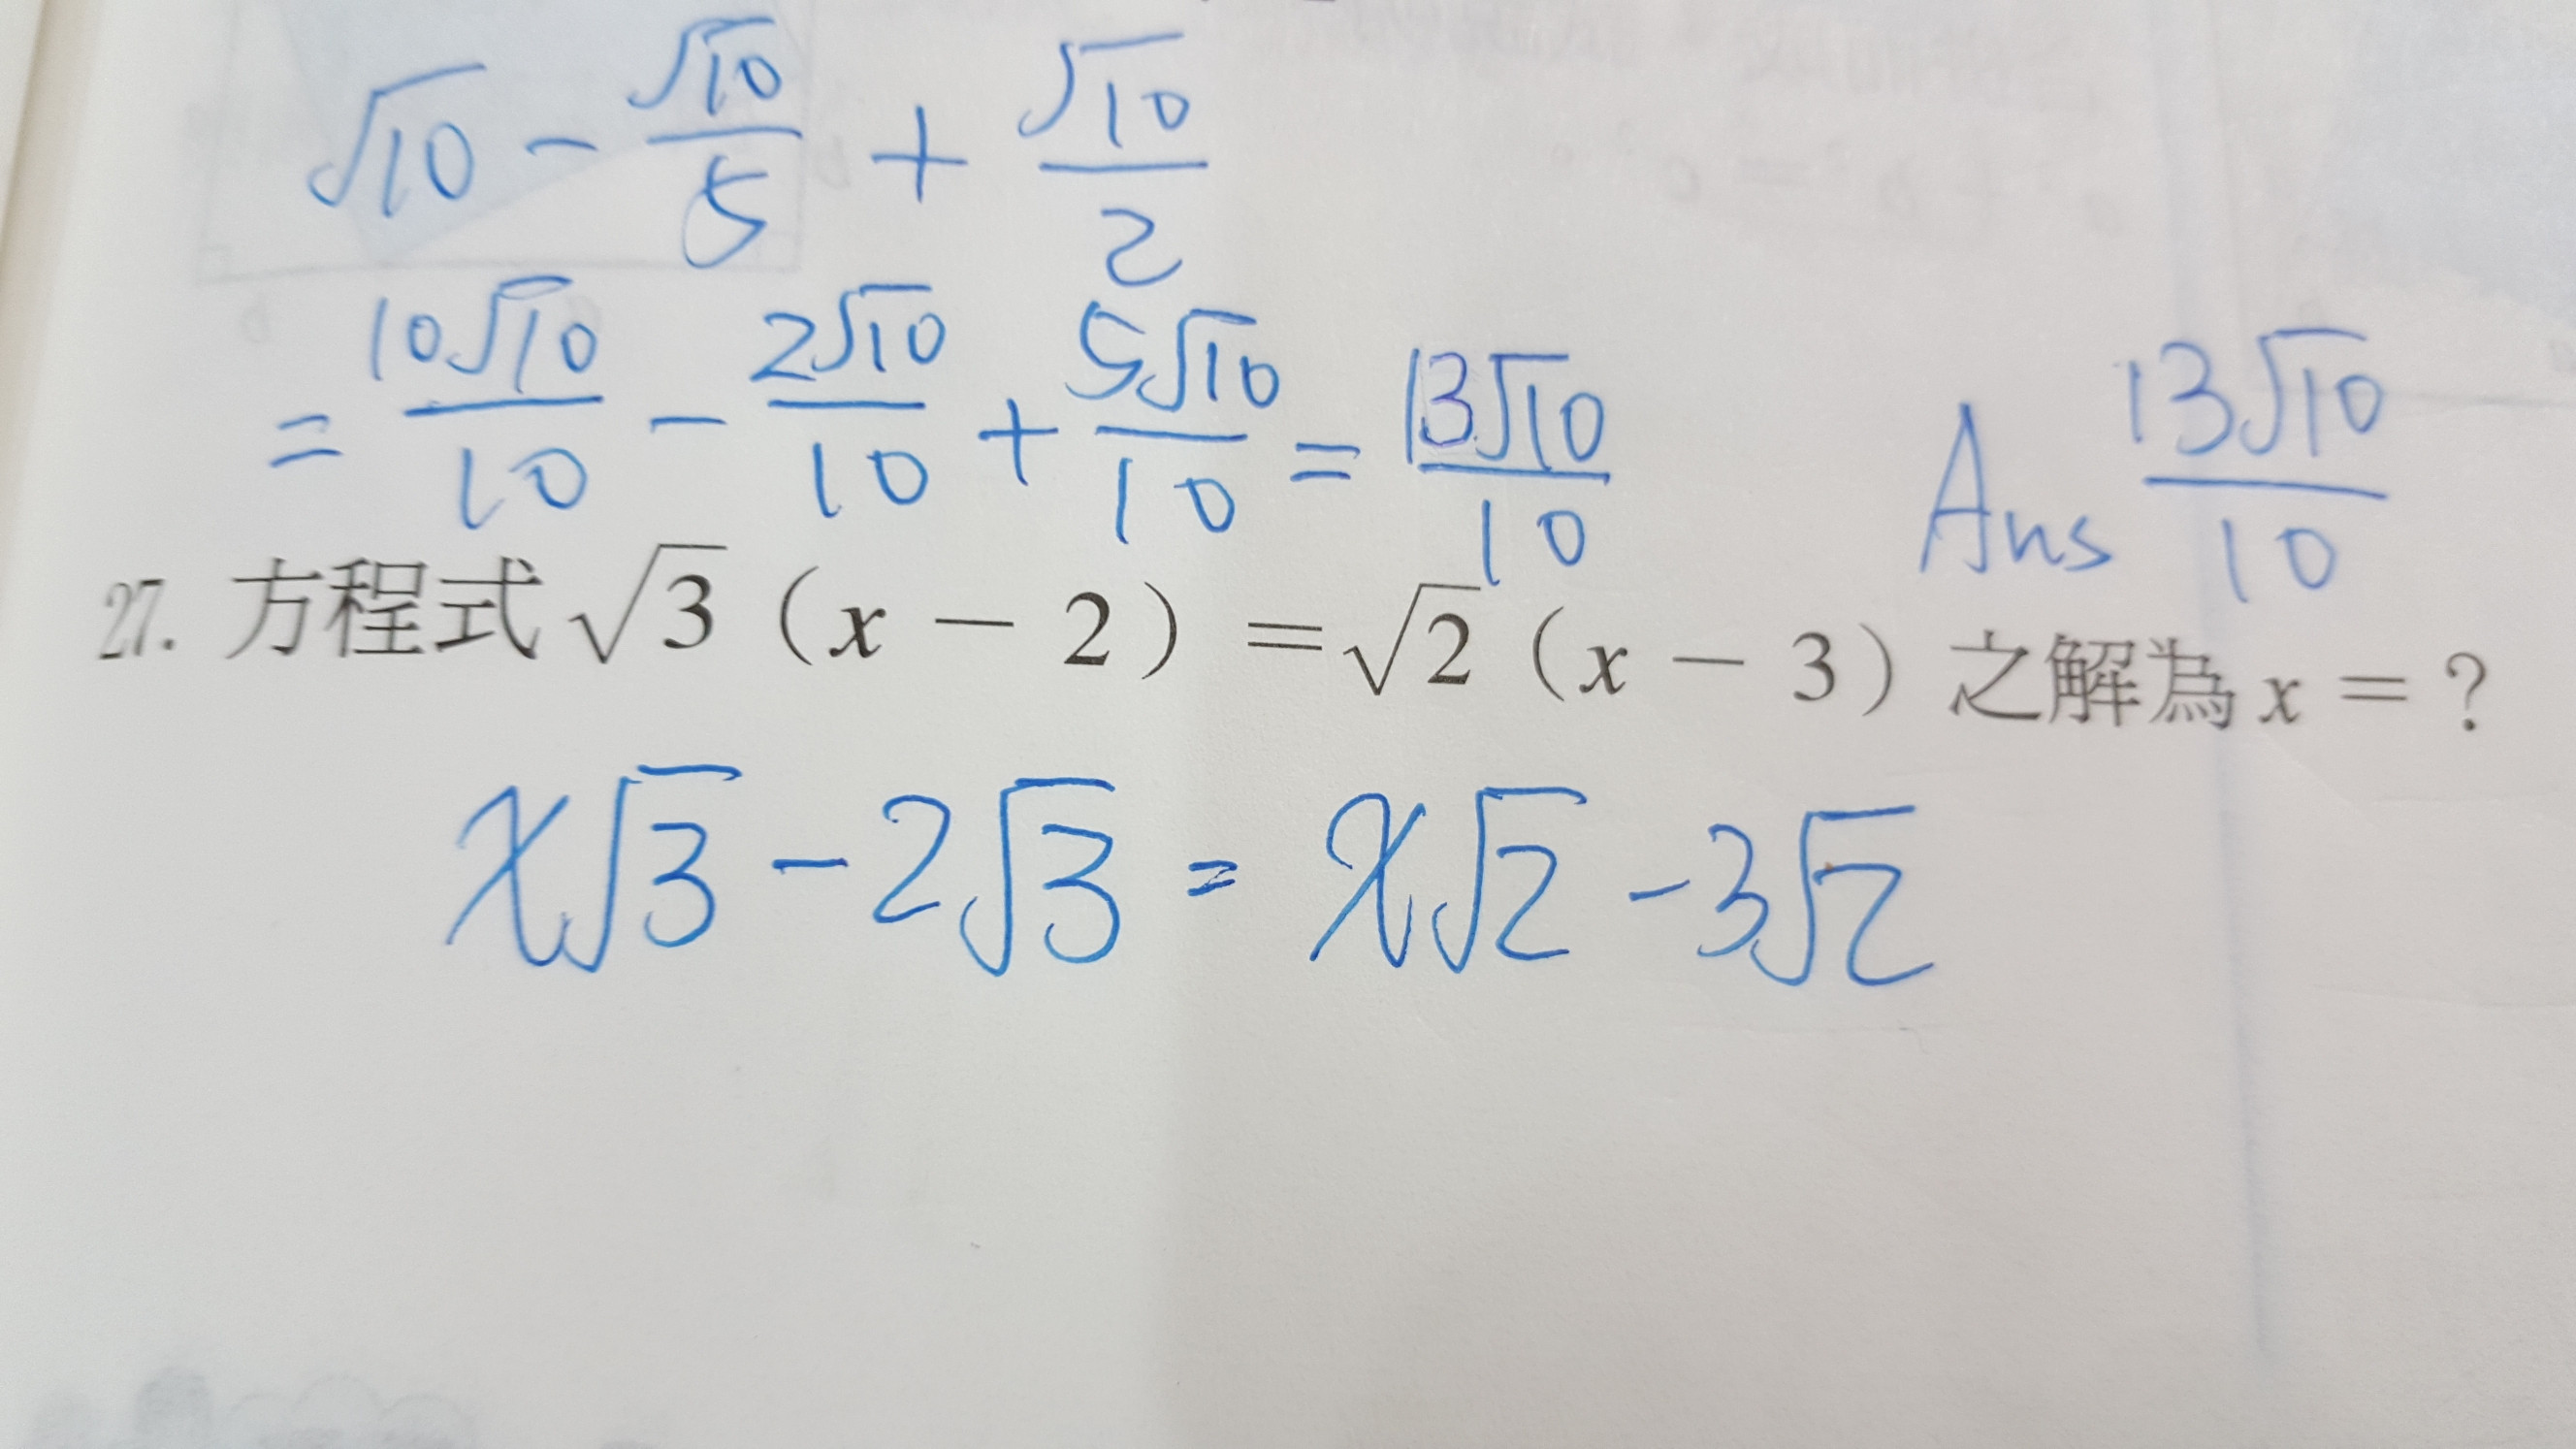 √10 − √10/5 + √10/2
= 10√10/10 − 2√10/10 + 5√10/10 = 13√10/10 Ans 13√10/10
27. 方程式√3（x − 2）=√2（x − 3）之解為 x = ?
x√3 − 2√3 = x√2 − 3√2